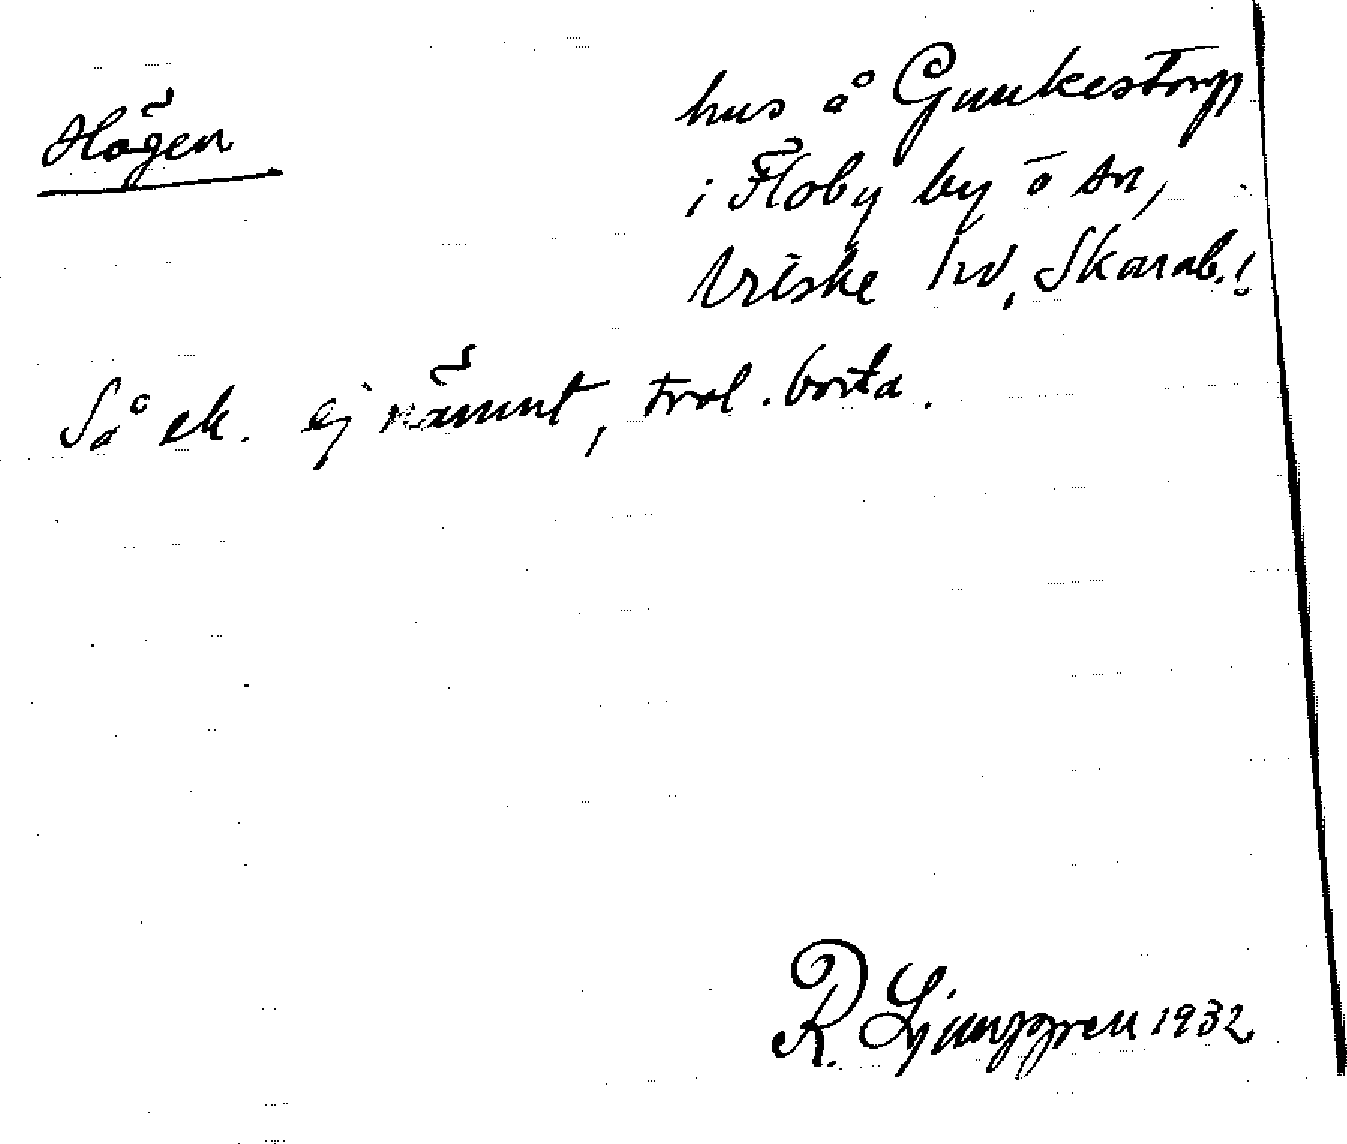 Högen
hus å Gunkestorp
i Floby by o sn,
Vilske hd, Skarab. l
Så ek. ej nämnt, trol. borta.
R. Ljunggren 1932